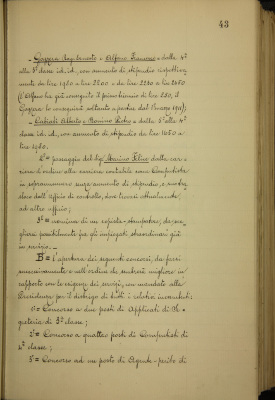 43
- Gazzera Rag. Ernesto e Alfano Francesco - dalla 4ª
alla 3ª classe id. id., con aumento di stipendio rispettiva
mente da lire 1980 a lire 2200 e da lire 2230 a lire 2450
(l'Alfano ha già conseguito il primo biennio di lire 250, il
Gazzera lo conseguirà soltanto a partire dal 1º marzo
- Alberto e Carlo - dalla 5ª alla 4ª
classe id. id., con aumento di stipendio da lire 1650 a
lire 1980.
2º= passaggio del Sig. Felice dalla car
riera d'ordine alla sezione contabile come Computista
in soprannumero senza aumento di stipendio, e
dolo dall'Ufficio di controllo, dove trovasi attualmente,
ad altro ufficio;
3º= nomina di un copista-stampatore, da sce
gliersi possibilmente fra gli impiegati straordinari già
in servizio. -
B= l'apertura dei seguenti concorsi, da farsi
successivamente e nell'ordine che sembrerà migliore in
rapporto con le esigenze dei servizi, con mandato alla
Presidenza per il disbrigo di tutti i relativi incombenti:
1º= Concorso a due posti di Applicati di Se
greteria di 3ª classe;
2º= Concorso a quattro posti di Computisti di
4ª classe;
3º= Concorso ad un posto di Agente-perito di